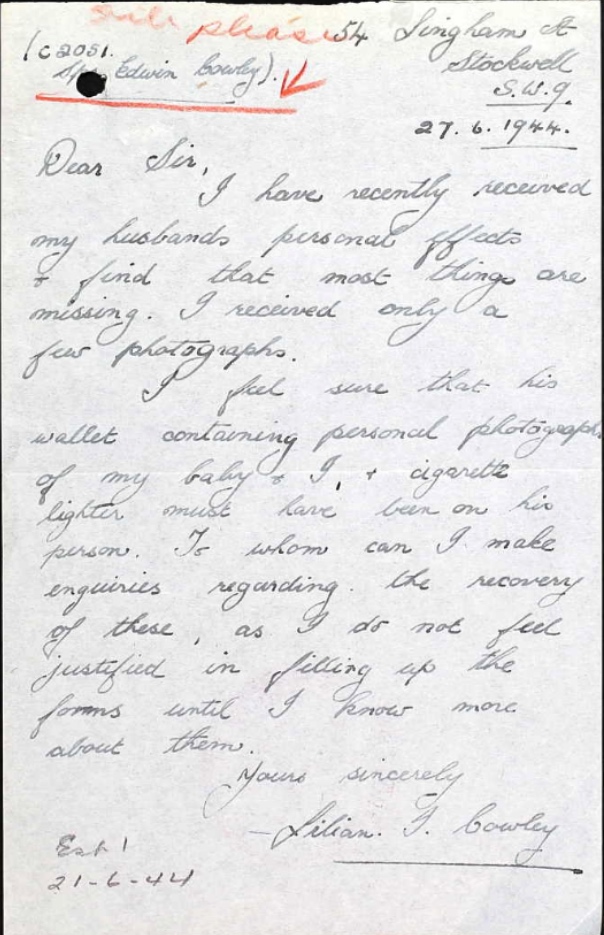 please
54 Lingham St
(C2051.
Stockwell
Edwin Cowley).
S.W.9.
27.6.1944.
Dear Sir,
I have recently received
my husbands personal effects
+ find that most things are
missing. I received only a
few photographs.
I feel sure that his
wallet containing personal photographs
of my baby + I, + cigarette
lighter must have been on his
person. To whom can I make
enquiries regarding. the recovery
of these, as I do not feel
justified in filling up the
forms until I know more
about them.
Yours sincerely
- Lilian. F. Cowley
Est 1
21-6-44